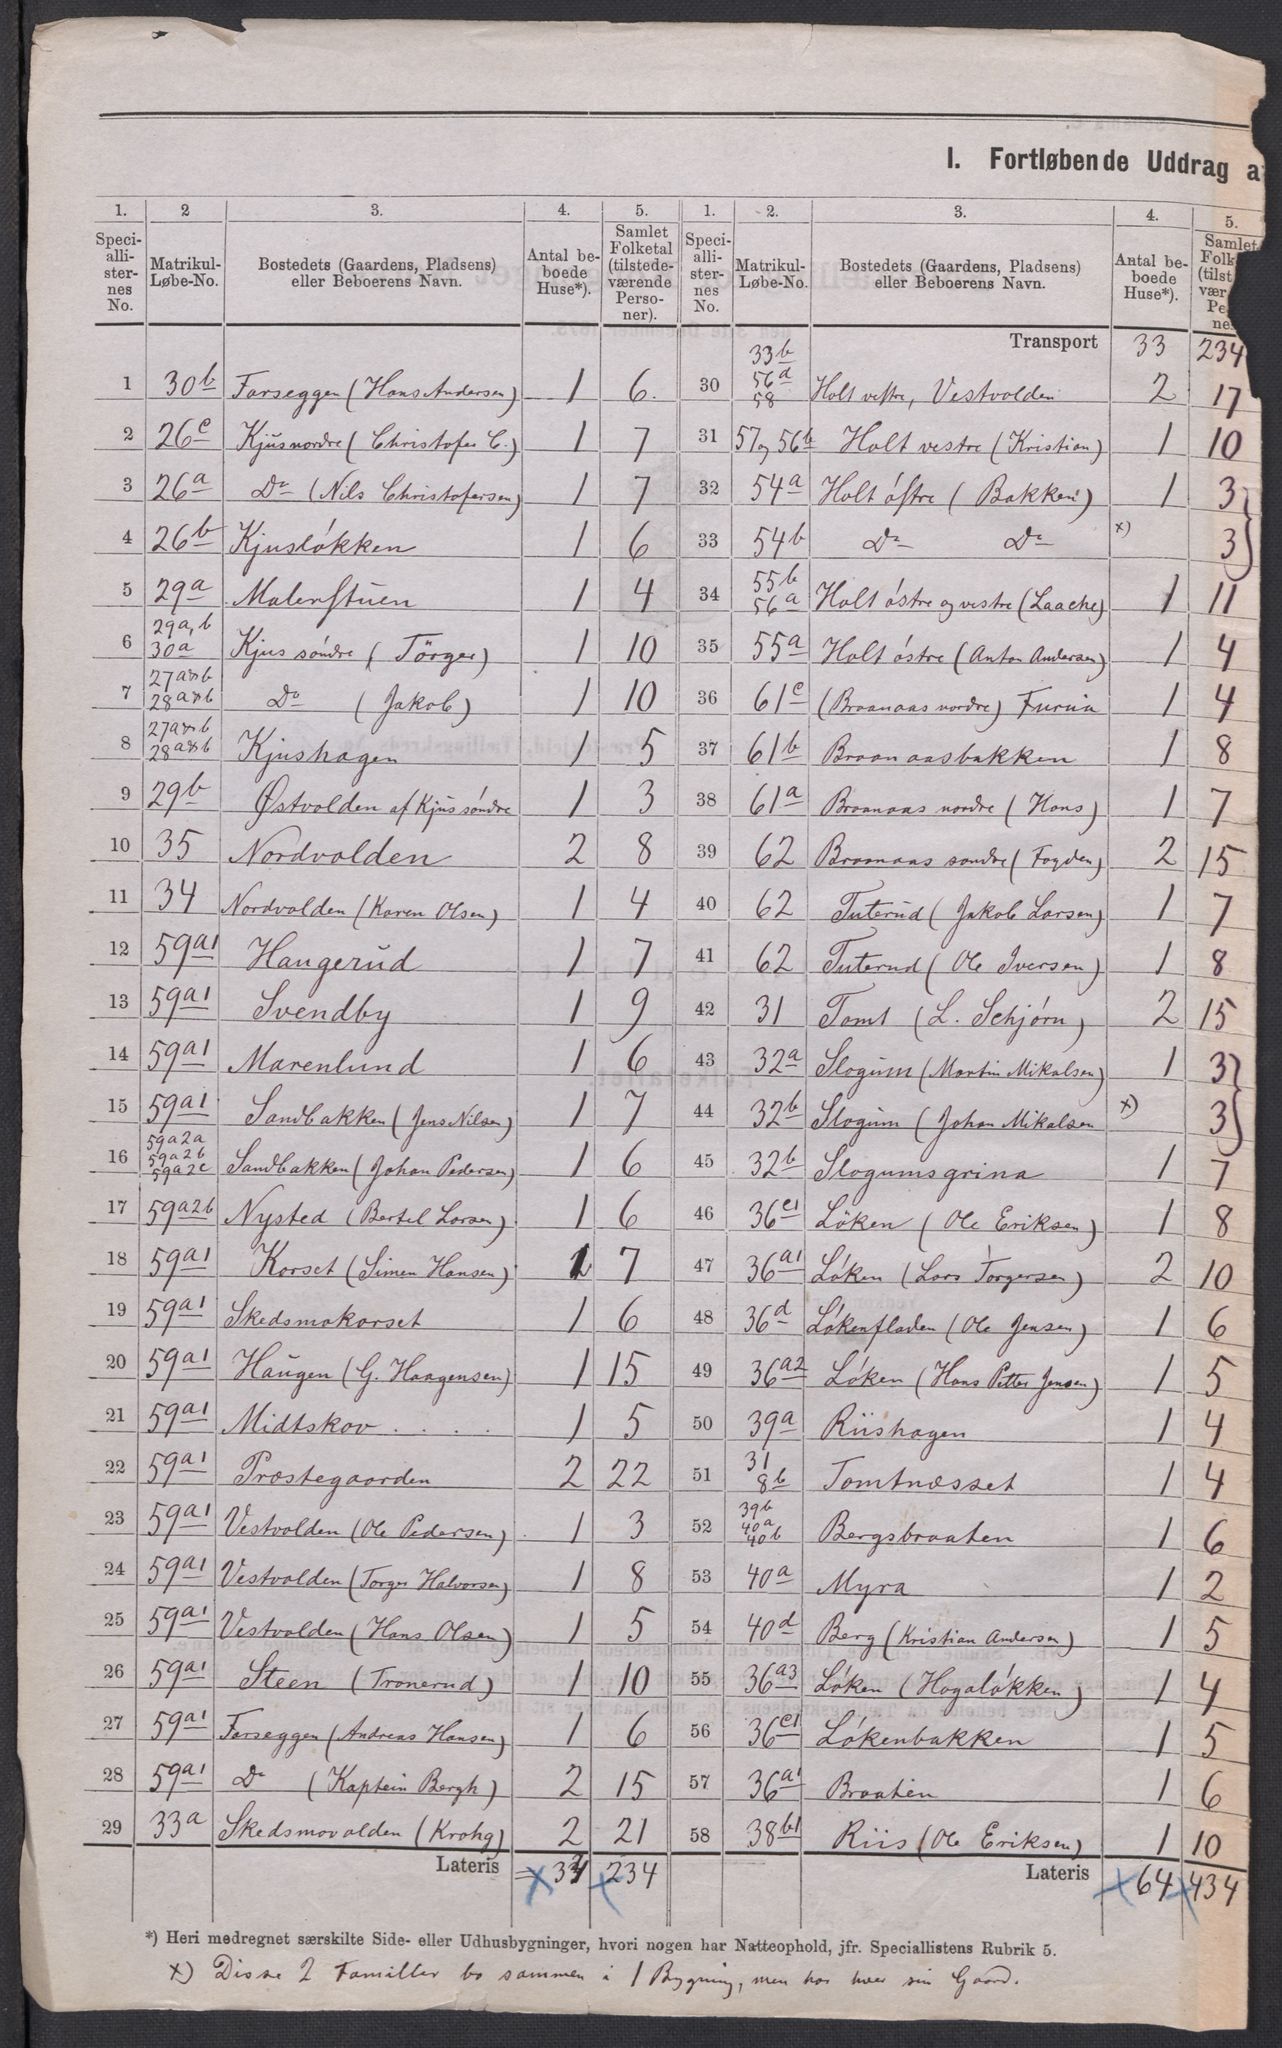 I. Fortløbende Uddrag a
1. 2 3. 4. 5. 1. 2. 3. 4. 5.
Speciallisternes No. Matrikul-Løbe-No. Bostedets (Gaardens, Pladsens) eller Beboerens Navn. Antal beboede Huse*). Samlet Folketal (tilstedeværende Personer). Speciallisternes No. Matrikul-Løbe-No. Bostedets (Gaardens, Pladsens) eller Beboerens Navn. Antal beboede Huse*). Samlet
Transport 33 234
1 30b Farseggen (Hans Andersen) 1 6
2 26c Kjus nordre (Christofer C.) 1 7
3 26a Do (Nils Christofersen) 1 7
4 26b Kjusløkken 1 6
5 29a Malerstuen 1 4
6 29a,b 30a Kjus søndre (Törger) 1 10
7 27a&b 28a&b Do (Jakob) 1 10
8 27a&b 28a&b Kjushagen 1 5
9 29b Østvolden af Kjus søndre 1 3
10 35 Nordvolden 2 8
11 34 Nordvolden (Karen Olsen) 1 4
12 59a1 Haugerud 1 7
13 59a1 Svendby 1 9
14 59a1 Marenlund 1 6
15 59a1 Sandbakken (Jens Nilsen) 1 7
16 59a2a 59a2b 59a2c Sandbakken (Johan Pedersen) 1 6
17 59a2b Nysted (Bertel Larsen) 1 6
18 59a1 Korset (Simen Hansen) 1 7
19 59a1 Skedsmokorset 1 6
20 59a1 Haugen (G. Haagensen) 1 15
21 59a1 Midtskov . . . . 1 5
22 59a1 Præstegaarden 2 22
23 59a1 Vestvolden (Ole Pedersen) 1 3
24 59a1 Vestvolden (Torger Halvorsen) 1 8
25 59a1 Vestvolden (Hans Olsen) 1 5
26 59a1 Steen (Tronerud) 1 10
27 59a1 Farseggen (Andreas Hansen) 1 6
28 59a1 Do (Kaptein Bergh) 2 15
29 33a Skedsmovolden (Krohg) 2 21
Lateris 33 234
30 33b 56d 58 Holt vestre, Vestvolden 2 17
31 57 og 56b Holt vestre (Kristian) 1 10
32 54a Holt østre (Bakken) 1 3
33 54b Do Do x) 3
34 55b 56a Holt østre og vestre (Laache) 1 11
35 55a Holt østre (Anton Andersen) 1 4
36 61c (Braanaas nordre) Furua 1 4
37 61b Braanaasbakken 1 8
38 61a Braanaas nordre (Hans) 1 7
39 62 Braanaas søndre (Fogden) 2 15
40 62 Tuterud (Jakob Larsen) 1 7
41 62 Tuterud (Ole Iversen) 1 8
42 31 Tomt (L. Schjørn) 2 15
43 32a Slogum (Martin Mikalsen) 1 3
44 32b Slogum (Johan Mikalsen x) 3
45 32b Slogumsgrina 1 7
46 36c1 Løken (Ole Eriksen) 1 8
47 36a1 Løken (Lars Torgersen) 2 10
48 36d Løkenfladen (Ole Jensen) 1 6
49 36a2 Løken (Hans Petter Jensen) 1 5
50 39a Riishagen 1 4
51 31 8b Tomtnæsset 1 4
52 39b 40a 40b Bergsbraaten 1 6
53 40a Myra 1 2
54 40d Berg (Kristian Andersen) 1 5
55 36a3 Løken (Hagaløkken) 1 4
56 36c1 Løkenbakken 1 5
57 36a1 Braaten 1 6
58 38b1 Riis (Ole Eriksen) 1 10
Lateris 64 434
*) Heri medregnet særskilte Side- eller Udhusbygninger, hvori nogen har Natteophold, jfr. Speciallistens Rubrik 5.
x) Disse 2 Familier bo sammen i 1 Bygning, men har hver sin Gaard.